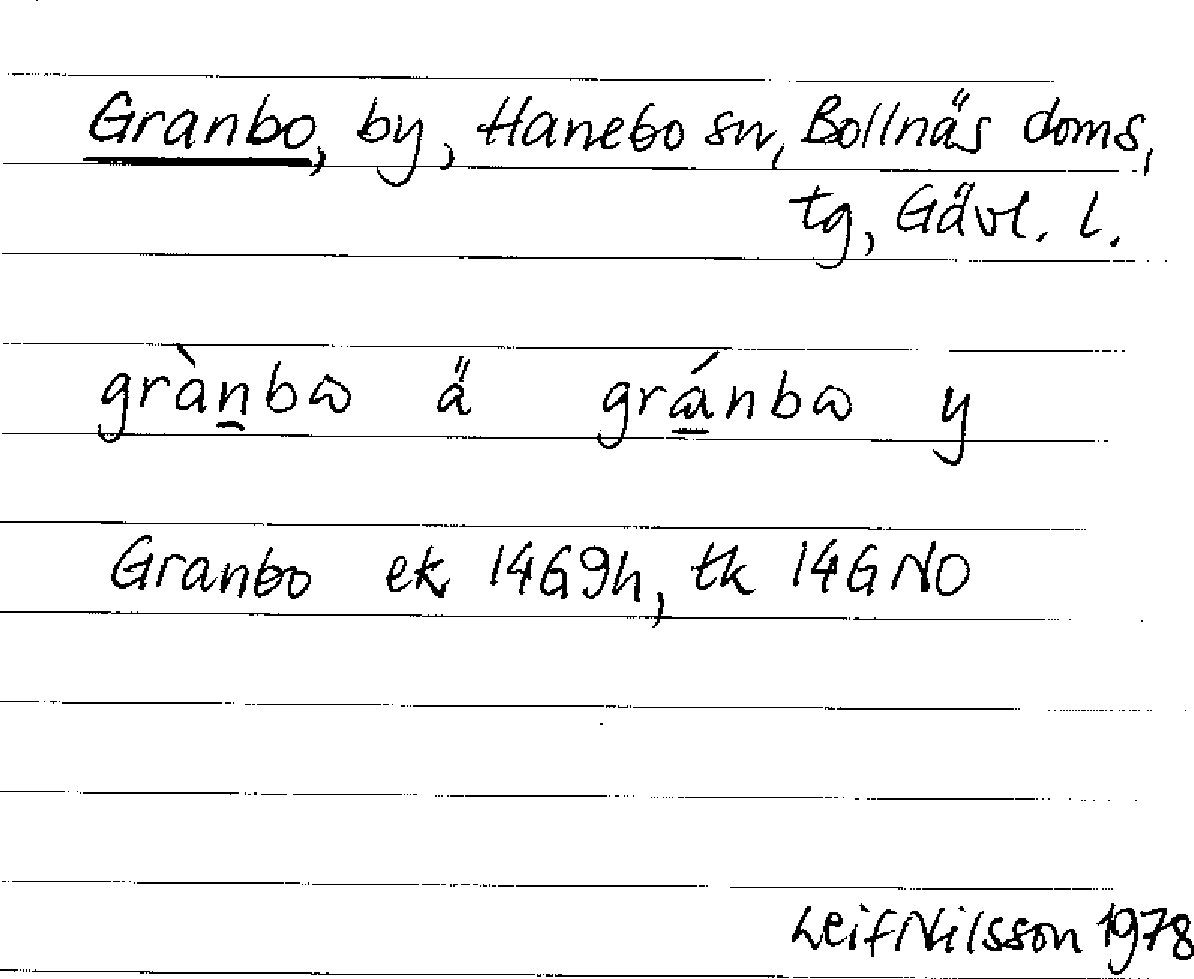 Granbo, by, Hanebo sn, Bollnäs doms,
tg, Gävl. l.
gràn̠bω ä grá̠nbω y
Granbo ek 14G9h, tk 14GNO
Leif Nilsson 1978